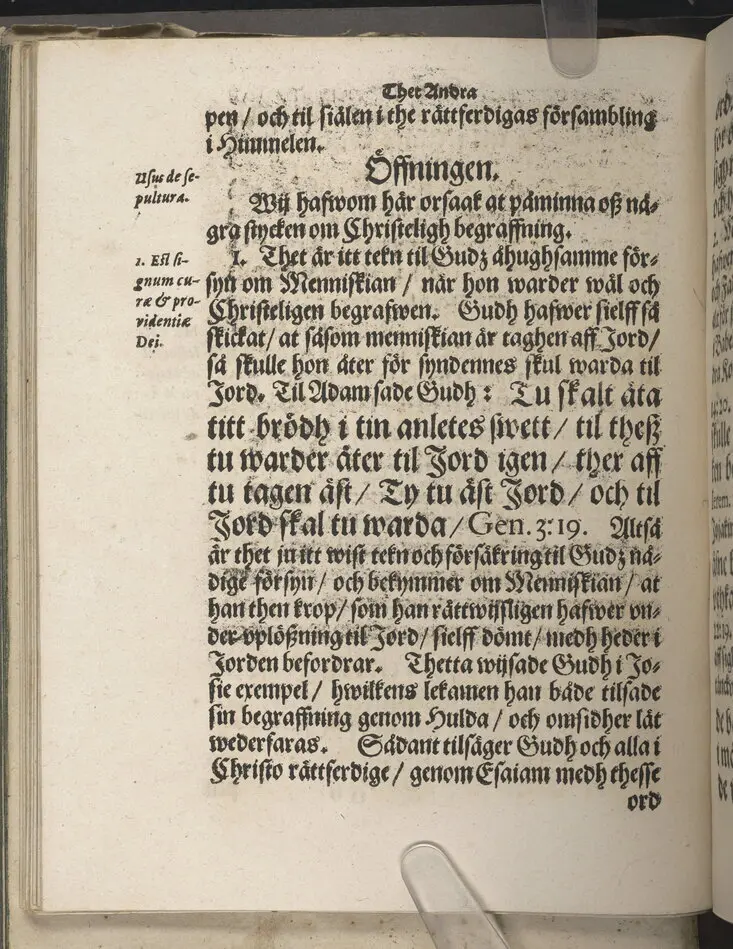 Thet Andra
pen / och til siälen i the rättferdigas försambling
i Himmelen.
Öffningen.
Usus de se-
pultura.
Wij hafwom här orsaak at påminna oß nå-
gra stycken om Christeligh begraffning.
1. Est si-
gnum cu-
ræ & pro-
videntiæ
Dei.
1. Thet är itt tekn til Gudz åhughsamme för-
syn om Menniskian / när hon warder wäl och
Christeligen begrafwen. Gudh hafwer sielff så
skickat / at såsom menniskian är taghen aff Jord /
så skulle hon åter för syndennes skul warda til
Jord. Til Adam sade Gudh : Tu skalt äta
titt brödh i tin anletes swett / til theß
tu warder åter til Jord igen / ther aff
tu tagen äst / Ty tu äst Jord / och til
Jord skal tu warda / Gen. 3: 19. Altså
är thet ju itt wist tekn och försäkring til Gudz nå-
dige försyn / och bekymmer om Menniskian / at
han then krop / som han rättwijsligen hafwer vn-
der vplößning til Jord / sielff dömt / medh heder i
Jorden befordrar. Thetta wijsade Gudh i Jo-
sie exempel / hwilkens lekamen han både tilsade
sin begraffning genom Hulda / och omsidher lät
wederfaras. Sådant tilsäger Gudh och alla i
Christo rättferdige / genom Esaiam medh thesse
ord